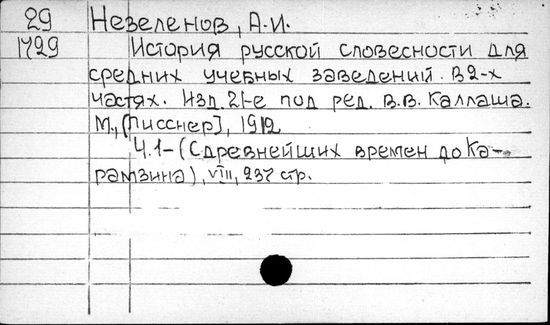 29 Незеленов, А.И.
1729 История русской словесности для
средних учебных заведений. В 2-х
частях. Изд. 21-е под ред. В.В. Каллаша.
М., [Лисснер], 1912
Ч.1- (С древнейших времен до Ка-
рамзина), VIII, 237 стр.